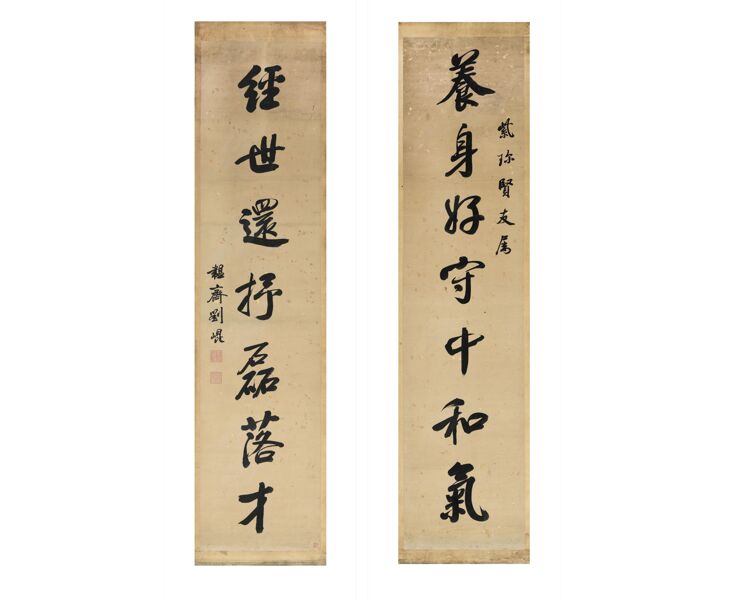 養身好守中和氣
紫珎賢友属
經世還抒磊落才
韞齋劉崐